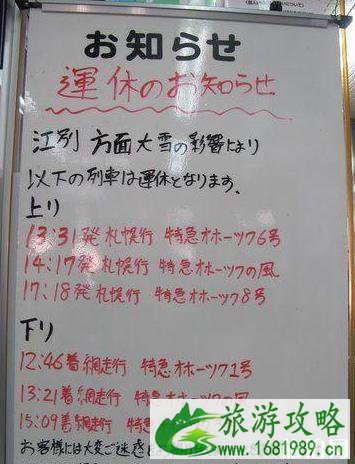 お知らせ
運休のお知らせ
江別 方面大雪の影響により
以下の列車は運休となります。
上り
13:31発 札幌行 特急オホーツク6号
14:17発 札幌行 特急オホーツクの風
17:18発 札幌行 特急オホーツク8号
下り
12:46着 網走行 特急オホーツク1号
13:21着 網走行 特急オホーツクの風
15:09着 網走行 特急オホーツ
お客様には大変ご迷惑
旅游攻略
www.1681989.cn